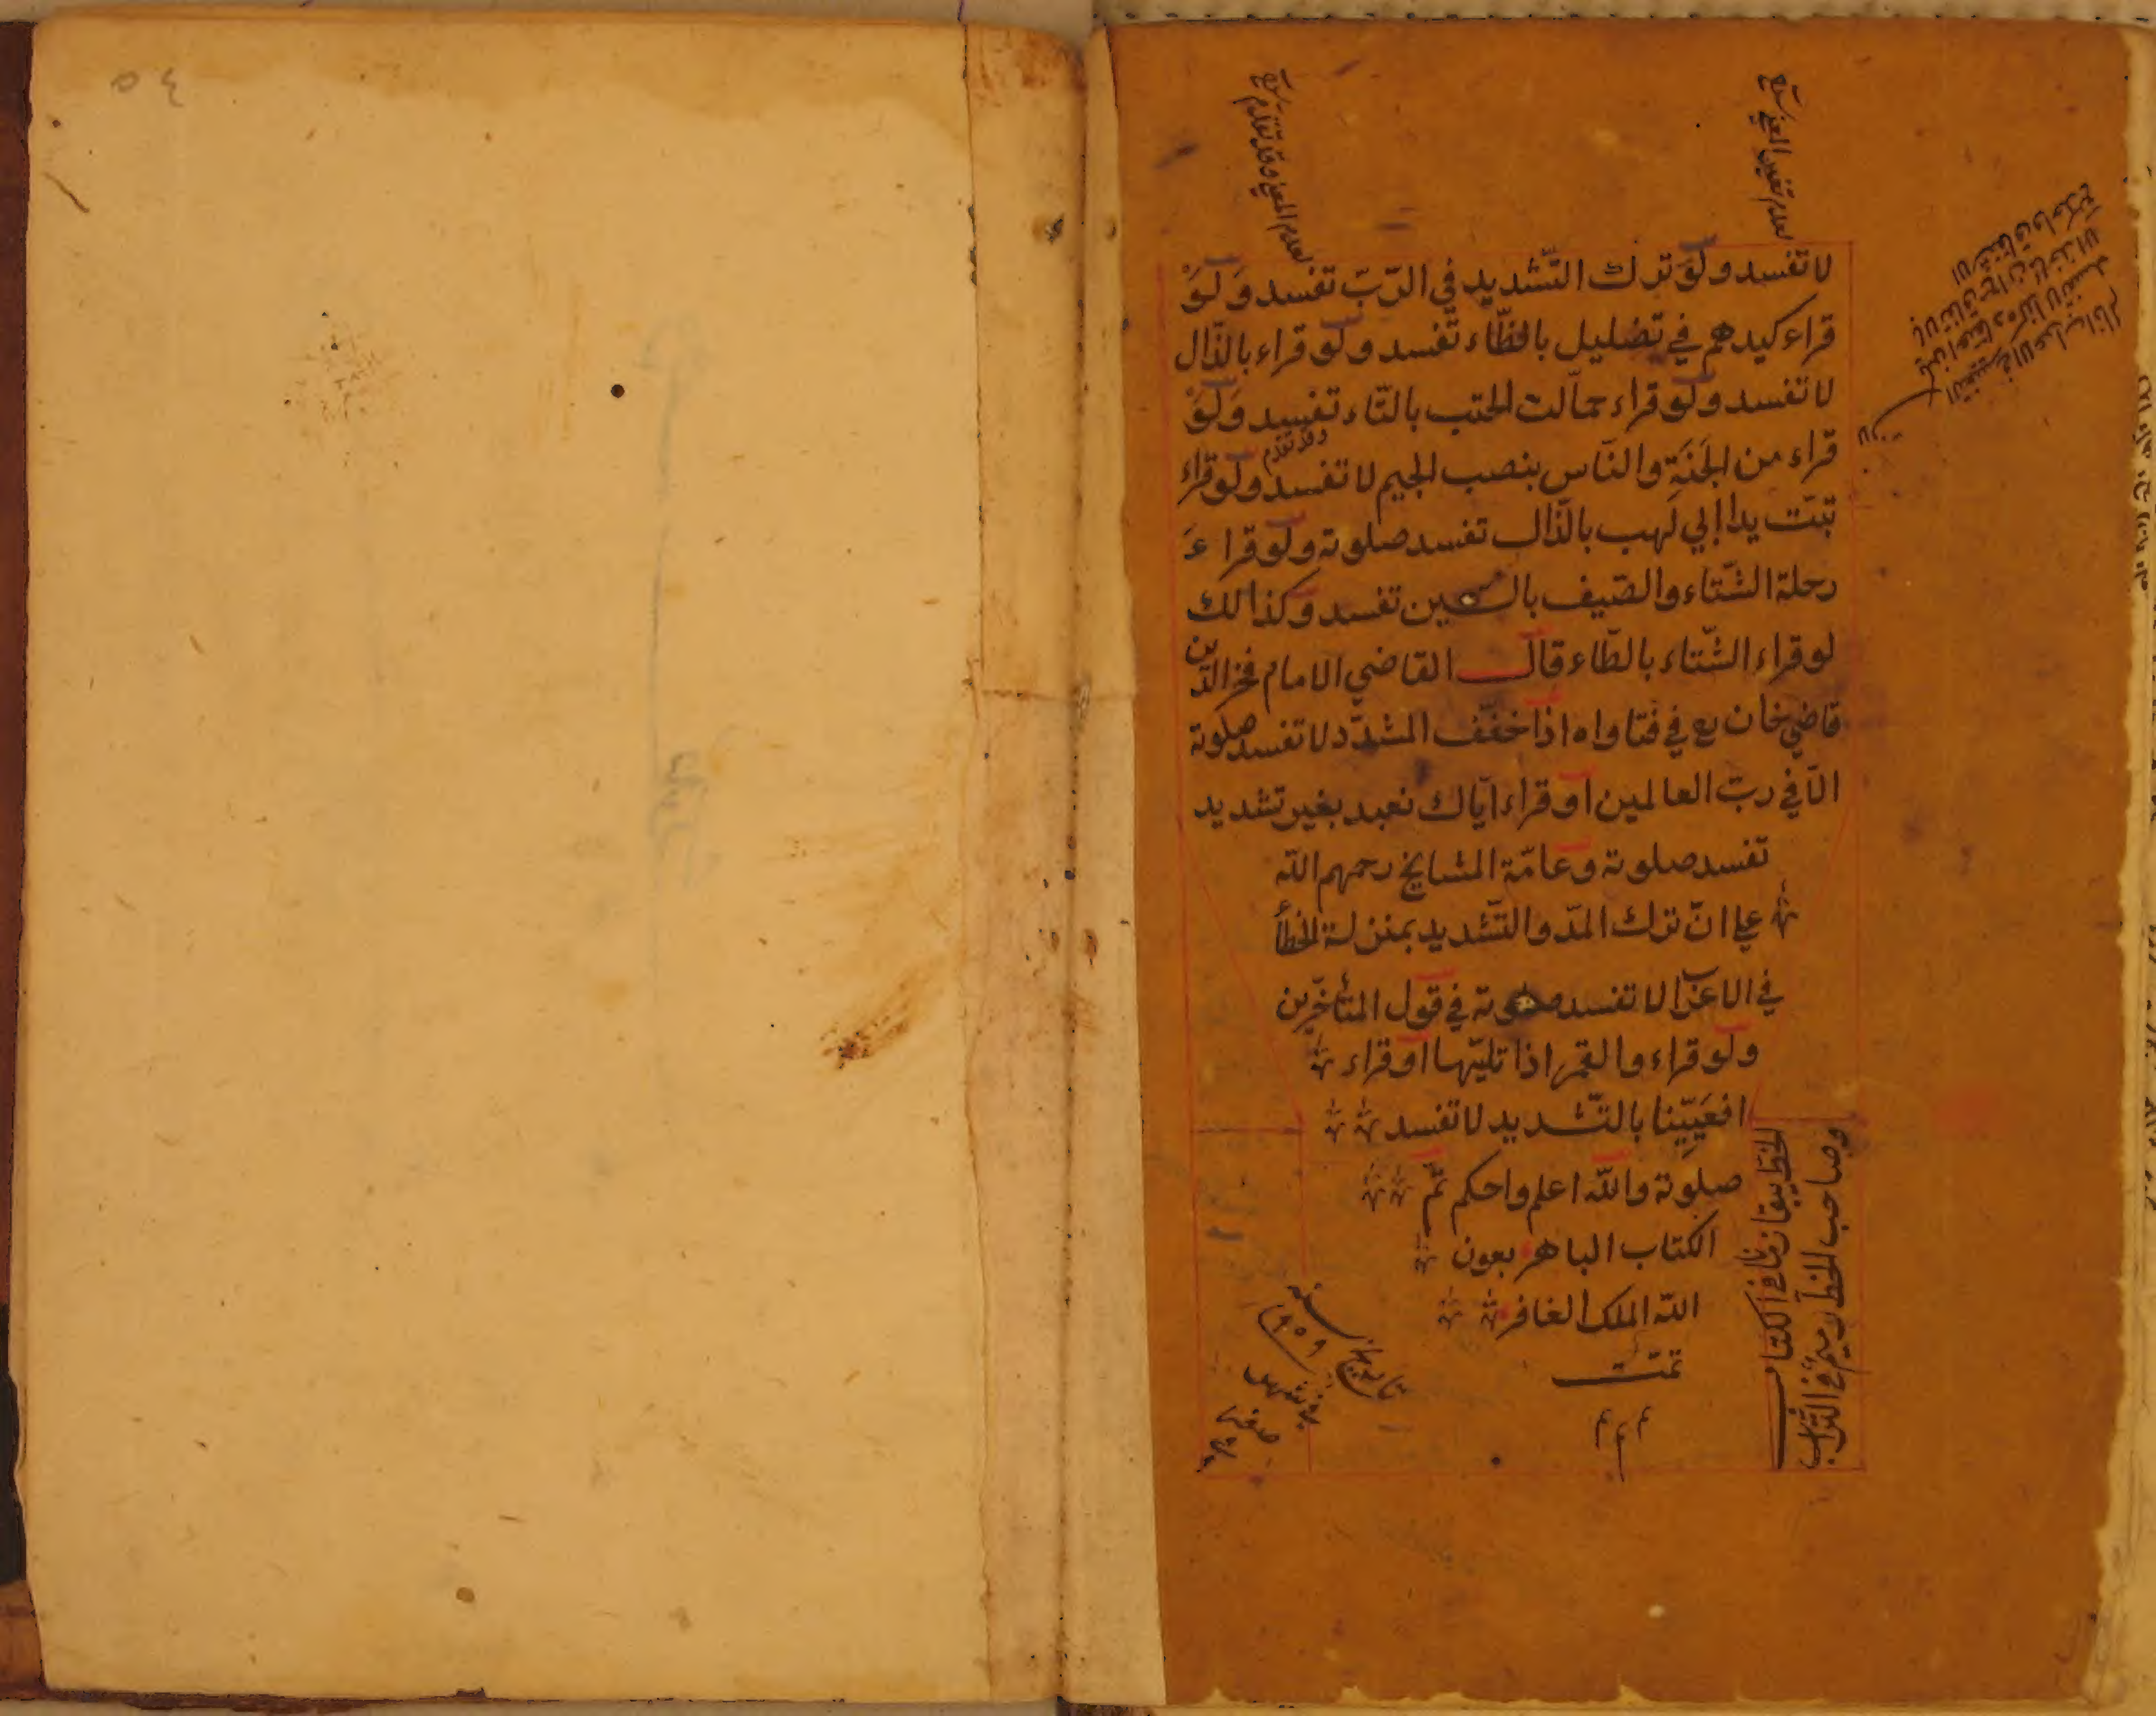 لا تفسد ولو ترك التّشديد في الربّ تفسد ولو
قراء كيدهم في تضليل بالظّاء تفسد ولو قراء بالذّال
لا تفسد ولو قراء حمّالت الحتب بالتّاء تفسد ولو
قراء من الجَنَةِ والنّاس بنصب الجيم لا تفسد ولو قراء
وقد تقدم
تبّت يدا ابي لهب بالذّال تفسد صلوته ولو قراء
رحلة الشّتاء والصّيف بالسين تفسد وكذالك
لو قراء الشّتاء بالطّاء قال القاضي الامام فخر الدّين
قاضي خان رح في فتاواه اذا خفّف المشدّد لا تفسد صلوته
الّا في ربّ العالمين او قراء ايّاك نعبد بغير تشديد
تفسد صلوته وعامّة المشايخ رحمهم اللّه
علي انّ ترك المدّ والتّشديد بمنزلة الخطأ
في الاعراب لا تفسد صلوته في قول المتأخّرين
ولو قراء والقمر اذا تليّها او قراء
افعَيِيّنا بالتّشديد لا تفسد
صلوته واللّه اعلم واحكم تمّ
الكتاب الباهر بعون
اللّه الملك الغافر
تمّت
م م م
الخط يبقا زمانا في الكتاب
وصاحب الخط رميم في التّراب
سنه
لعدم تغير المعني
لعدم المعني وقد تقدم
٤٥